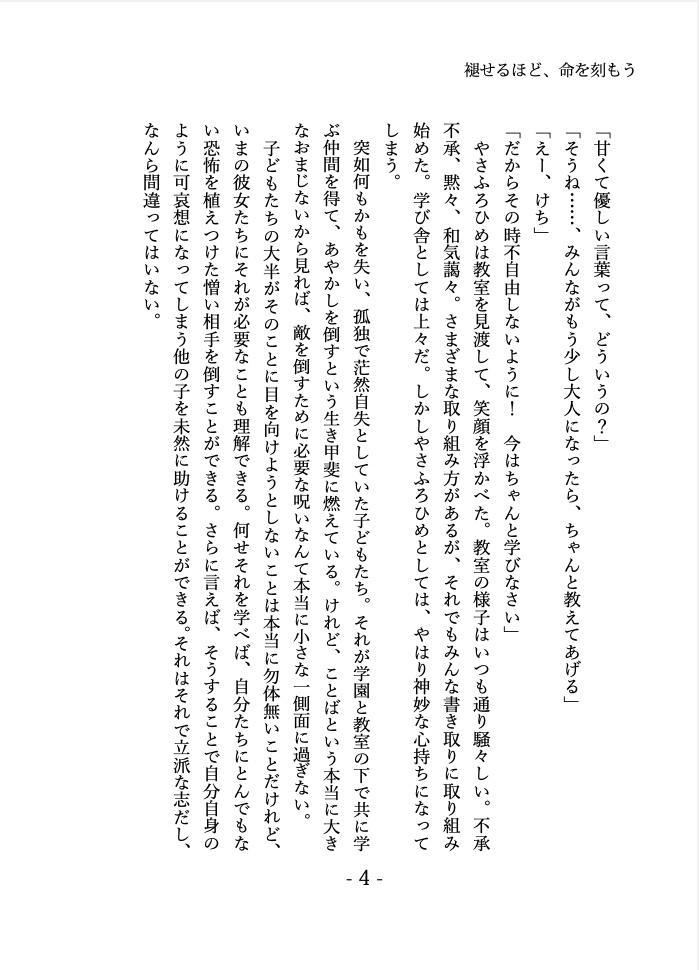 褪せるほど、命を刻もう
「甘くて優しい言葉って、どういうの？」
「そうね……、みんながもう少し大人になったら、ちゃんと教えてあげる」
「えー、けち」
「だからその時不自由しないように！　今はちゃんと学びなさい」
　やさふろひめは教室を見渡して、笑顔を浮かべた。教室の様子はいつも通り騒々しい。不承
不承、黙々、和気藹々。さまざまな取り組み方があるが、それでもみんな書き取りに取り組み
始めた。学び舎としては上々だ。しかしやさふろひめとしては、やはり神妙な心持ちになって
しまう。
　突如何もかもを失い、孤独で茫然自失としていた子どもたち。それが学園と教室の下で共に学
ぶ仲間を得て、あやかしを倒すという生き甲斐に燃えている。けれど、ことばという本当に大き
なおまじないから見れば、敵を倒すために必要な呪いなんて本当に小さな一側面に過ぎない。
　子どもたちの大半がそのことに目を向けようとしないことは本当に勿体無いことだけれど、
いまの彼女たちにそれが必要なことも理解できる。何せそれを学べば、自分たちにとんでもな
い恐怖を植えつけた憎い相手を倒すことができる。さらに言えば、そうすることで自分自身の
ように可哀想になってしまう他の子を未然に助けることができる。それはそれで立派な志だし、
なんら間違ってはいない。
- 4 -